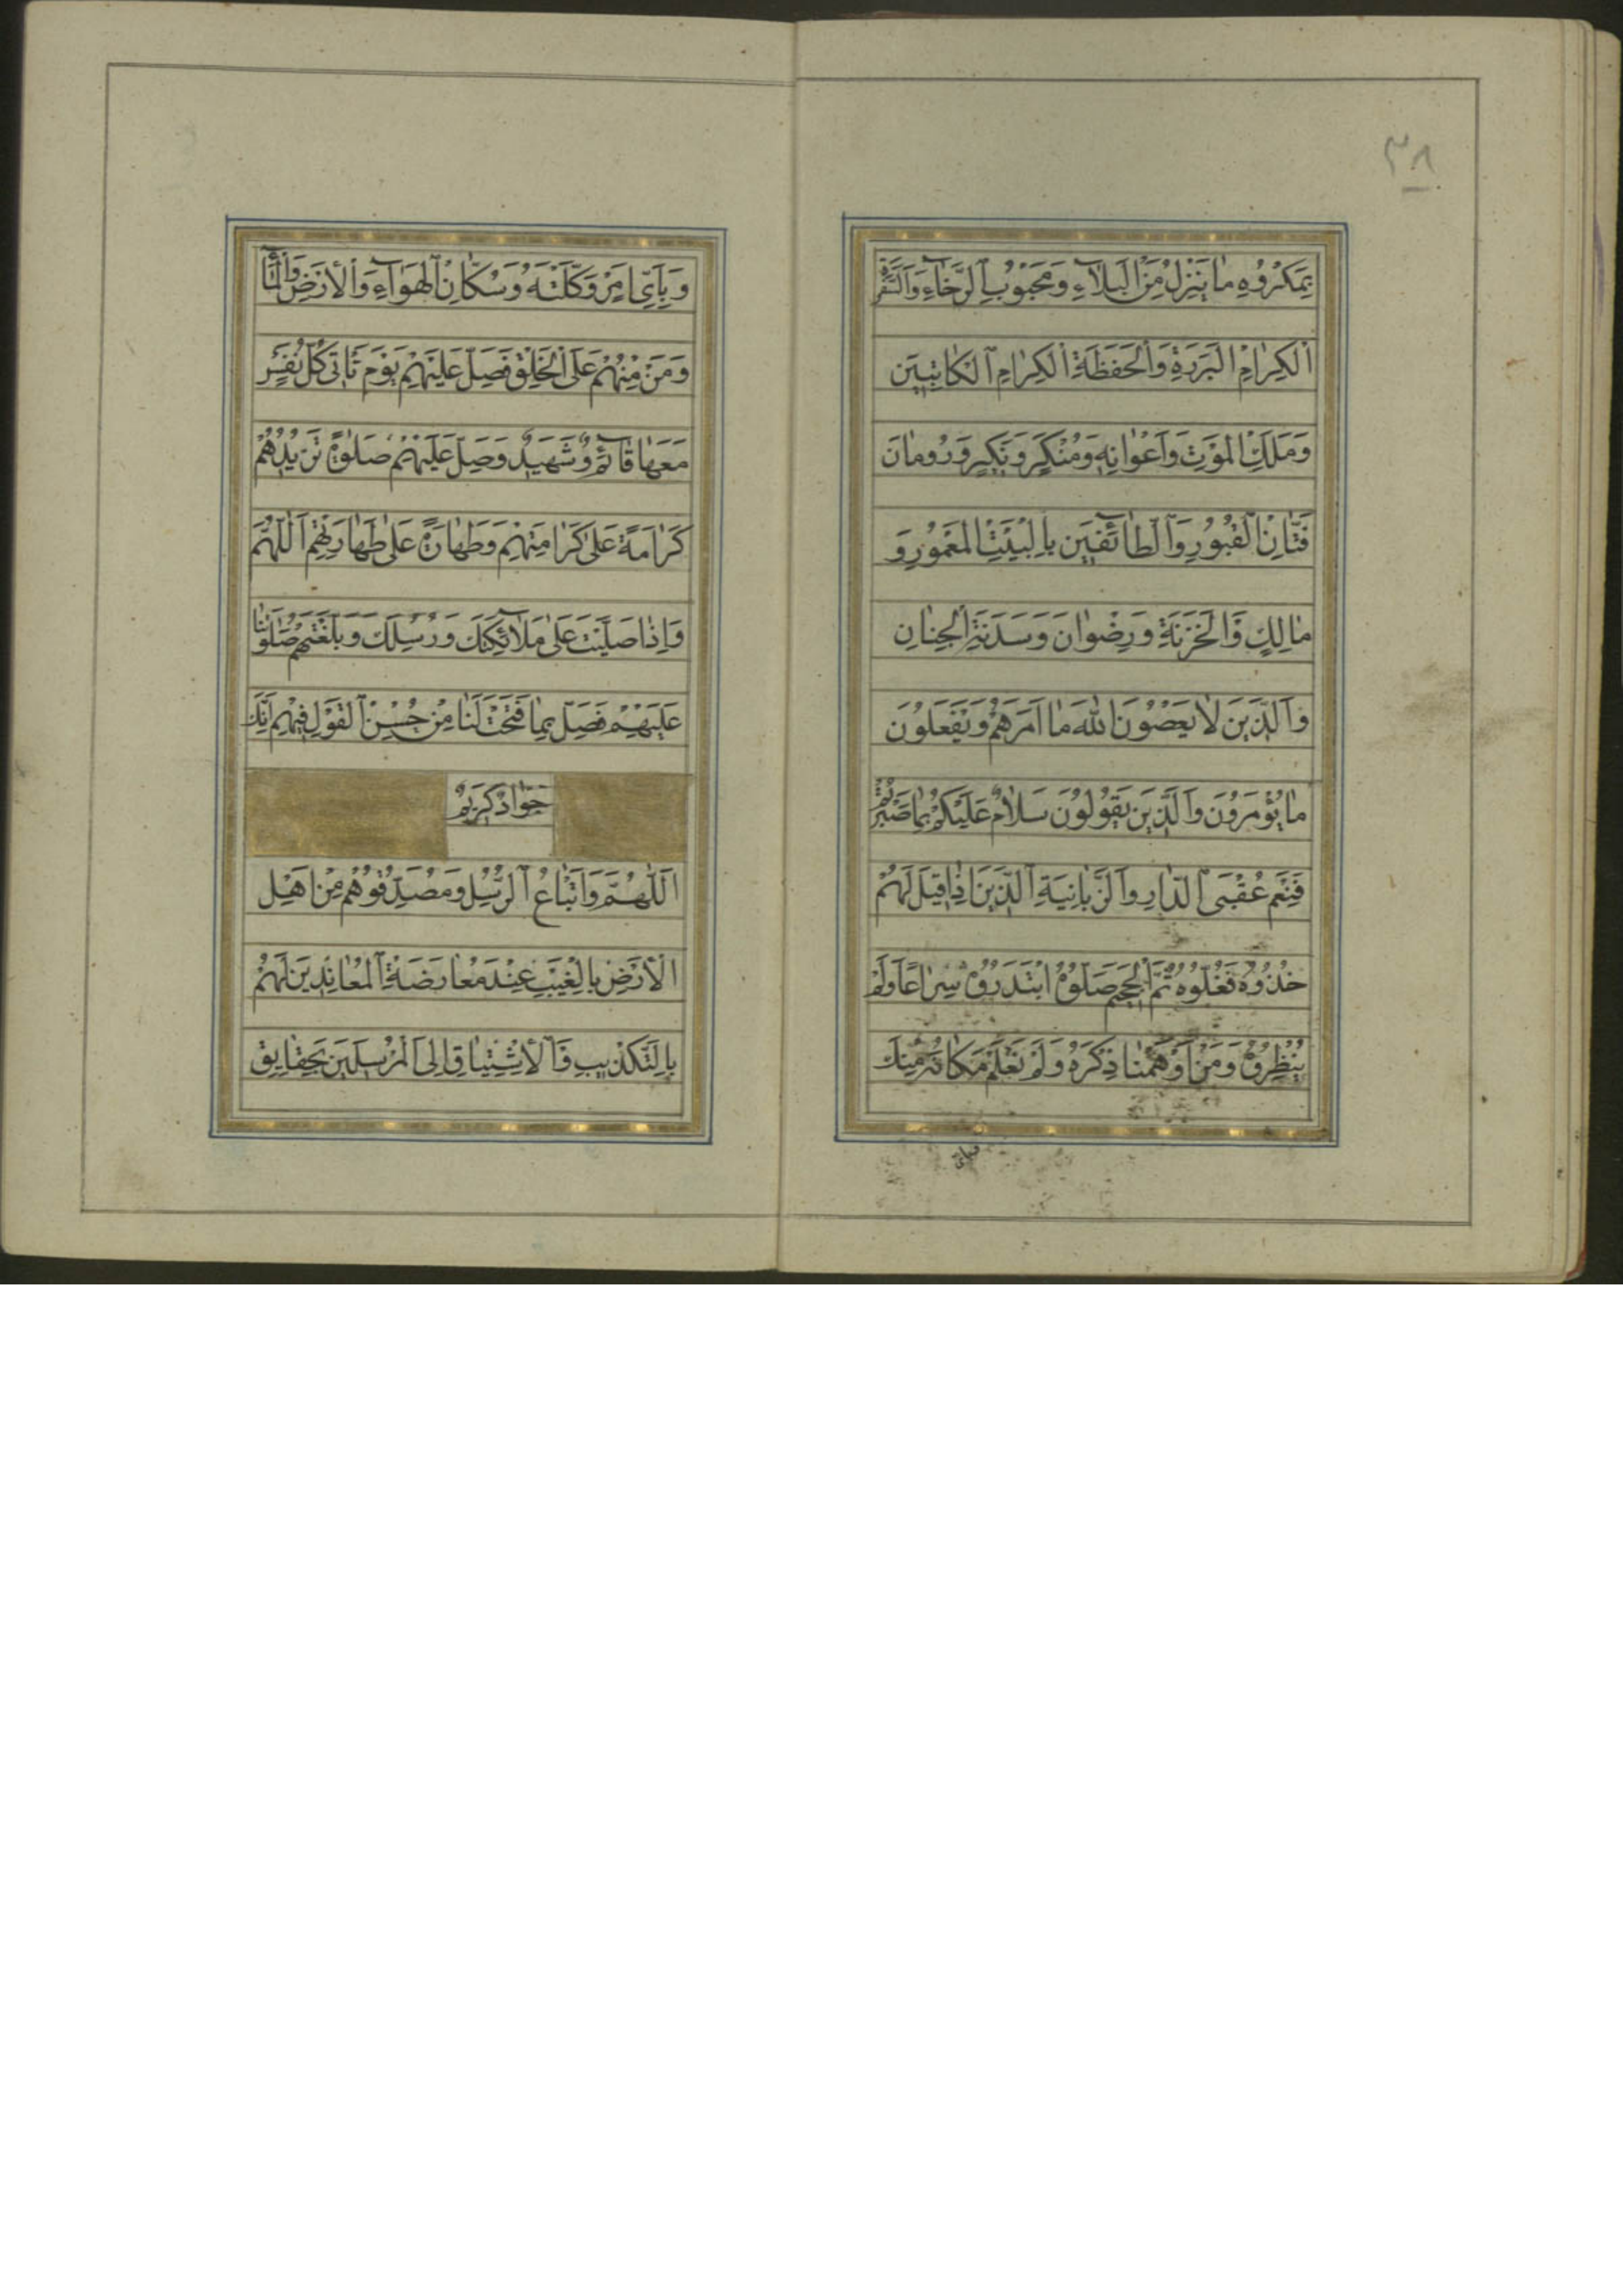 ٣٨
بِمَكْرُوهِ مٰا يَنْزِلُ مِنَ الْبَلٰآءِ وَمَحْبُوبِ الرَّخٰآءِ وَالسَّفَرَةِ
الْكِرٰامِ الْبَرَرَةِ وَالْحَفَظَةِ الْكِرٰامِ الْكٰاتِبينَ
وَمَلَكِ الْمَوْتِ وَاَعْوٰانِهِ وَمُنْكَرٍ وَنَكيرٍ وَرُومٰانَ
فَتّٰانِ الْقُبُورِ وَالطّٰائِفينَ بِالْبَيْتِ الْمَعْمُورِ وَ
مٰالِكٍ وَالْخَزَنَةِ وَرِضْوٰانَ وَسَدَنَةِ الْجِنٰانِ
وَالَّذينَ لٰا يَعْصُونَ اللّٰهَ مٰا اَمَرَهُمْ وَيَفْعَلُونَ
مٰا يُؤْمَرُونَ وَالَّذينَ يَقُولُونَ سَلٰامٌ عَلَيْكُمْ بِمٰا صَبَرْتُمْ
فَنِعْمَ عُقْبَى الدّٰارِ وَالزَّبٰانِيَةِ الَّذينَ اِذٰا قيلَ لَهُمْ
خُذُوهُ فَغُلُّوهُ ثُمَّ الْجَحيمَ صَلُّوهُ ابْتَدَرُوهُ سِرٰاعًا وَلَمْ
يُنْظِرُوهُ وَمَنْ اَوْهَمْنٰا ذِكْرَهُ وَلَمْ نَعْلَمْ مَكٰانَهُ مِنْكَ
وَبِاَىِّ اَمْرٍ وَكَّلْتَهُ وَسُكّٰانِ الْهَوٰآءِ وَالْاَرْضِ وَالْمٰآءِ
وَمَنْ مِنْهُمْ عَلَى الْخَلْقِ فَصَلِّ عَلَيْهِمْ يَوْمَ تَاْتى كُلُّ نَفْسٍ
مَعَهٰا قٰآئِمٌ وَشَهيدٌ وَصَلِّ عَلَيْهِمْ صَلٰوةً تَزيدُهُمْ
كَرٰامَةً عَلىٰ كَرٰامَتِهِمْ وَطَهٰارَةً عَلىٰ طَهٰارَتِهِمْ اَللّٰهُمَّ
وَاِذٰا صَلَّيْتَ عَلىٰ مَلٰآئِكَتِكَ وَرُسُلِكَ وَبَلَّغْتَهُمْ صَلٰوتَنٰا
عَلَيْهِمْ فَصَلِّ بِمٰا فَتَحْتَ لَنٰا مِنْ حُسْنِ الْقَوْلِ فيهِمْ اِنَّكَ
جَوٰادٌ كَريمٌ
اَللّٰهُمَّ وَاَتْبٰاعُ الرُّسُلِ وَمُصَدِّقُوهُمْ مِنْ اَهْلِ
الْاَرْضِ بِالْغَيْبِ عِنْدَ مُعٰارَضَةِ الْمُعٰانِدينَ لَهُمْ
بِالتَّكْذيبِ وَالْاِشْتِيٰاقِ اِلَى الْمُرْسَلينَ بِحَقٰايِقِ